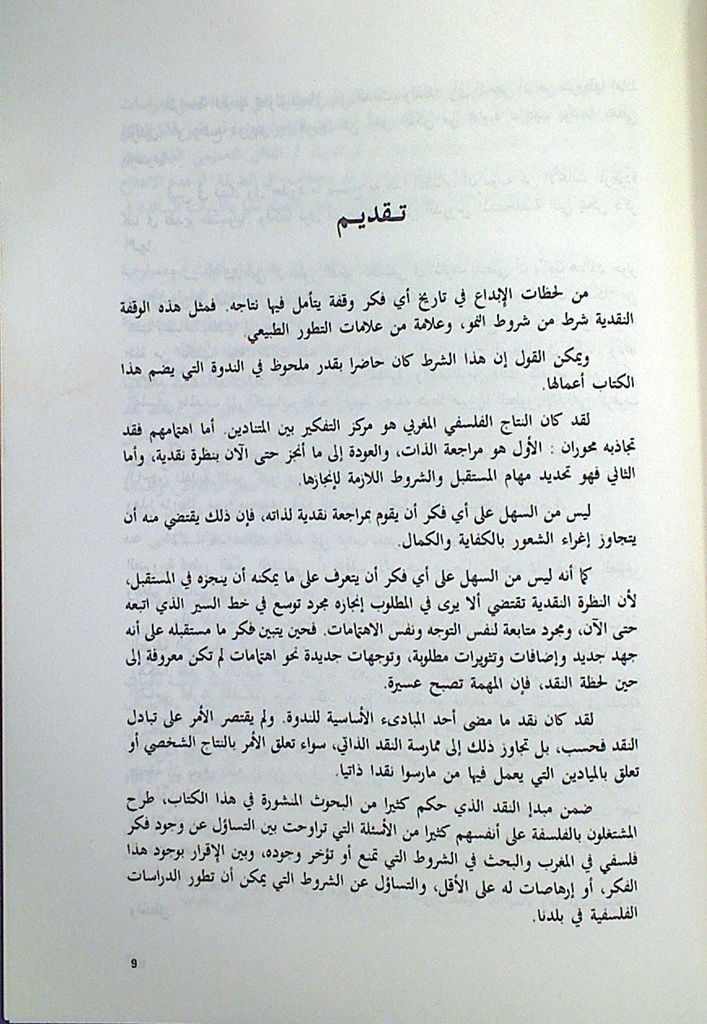 تـقديـم
من لحظات الإبداع في تاريخ أي فكر وقفة يتأمل فيها نتاجه. فمثل هذه الوقفة
النقدية شرط من شروط النمو، وعلامة من علامات التطور الطبيعي.
ويمكن القول إن هذا الشرط كان حاضرا بقدر ملحوظ في الندوة التي يضم هذا
الكتاب أعمالها.
لقد كان النتاج الفلسفي المغربي هو مركز التفكير بين المتنادين. أما اهتمامهم فقد
تجاذبه محوران : الأول هو مراجعة الذات، والعودة إلى ما أنجز حتى الآن بنظرة نقدية، وأما
الثاني فهو تحديد مهام المستقبل والشروط اللازمة لإنجازها.
ليس من السهل على أي فكر أن يقوم بمراجعة نقدية لذاته، فإن ذلك يقتضي منه أن
يتجاوز إغراء الشعور بالكفاية والكمال.
كما أنه ليس من السهل على أي فكر أن يتعرف على ما يمكنه أن ينجزه في المستقبل،
لأن النظرة النقدية تقتضي ألا يرى في المطلوب إنجازه مجرد توسع في خط السير الذي اتبعه
حتى الآن، ومجرد متابعة لنفس التوجه ونفس الاهتمامات. فحين يتبين فكر ما مستقبله على أنه
جهد جديد وإضافات وتثويرات مطلوبة، وتوجهات جديدة نحو اهتمامات لم تكن معروفة إلى
حين لحظة النقد، فإن المهمة تصبح عسيرة.
لقد كان نقد ما مضى أحد المبادىء الأساسية للندوة. ولم يقتصر الأمر على تبادل
النقد فحسب، بل تجاوز ذلك إلى ممارسة النقد الذاتي، سواء تعلق الأمر بالنتاج الشخصي أو
تعلق بالميادين التي يعمل فيها من مارسوا نقدا ذاتيا.
ضمن مبدإ النقد الذي حكم كثيرا من البحوث المنشورة في هذا الكتاب، طرح
المشتغلون بالفلسفة على أنفسهم كثيرا من الأسئلة التي تراوحت بين التساؤل عن وجود فكر
فلسفي في المغرب والبحث في الشروط التي تمنع أو تؤخر وجوده، وبين الإقرار بوجود هذا
الفكر، أو إرهاصات له على الأقل، والتساؤل عن الشروط التي يمكن أن تطور الدراسات
الفلسفية في بلدنا.
9